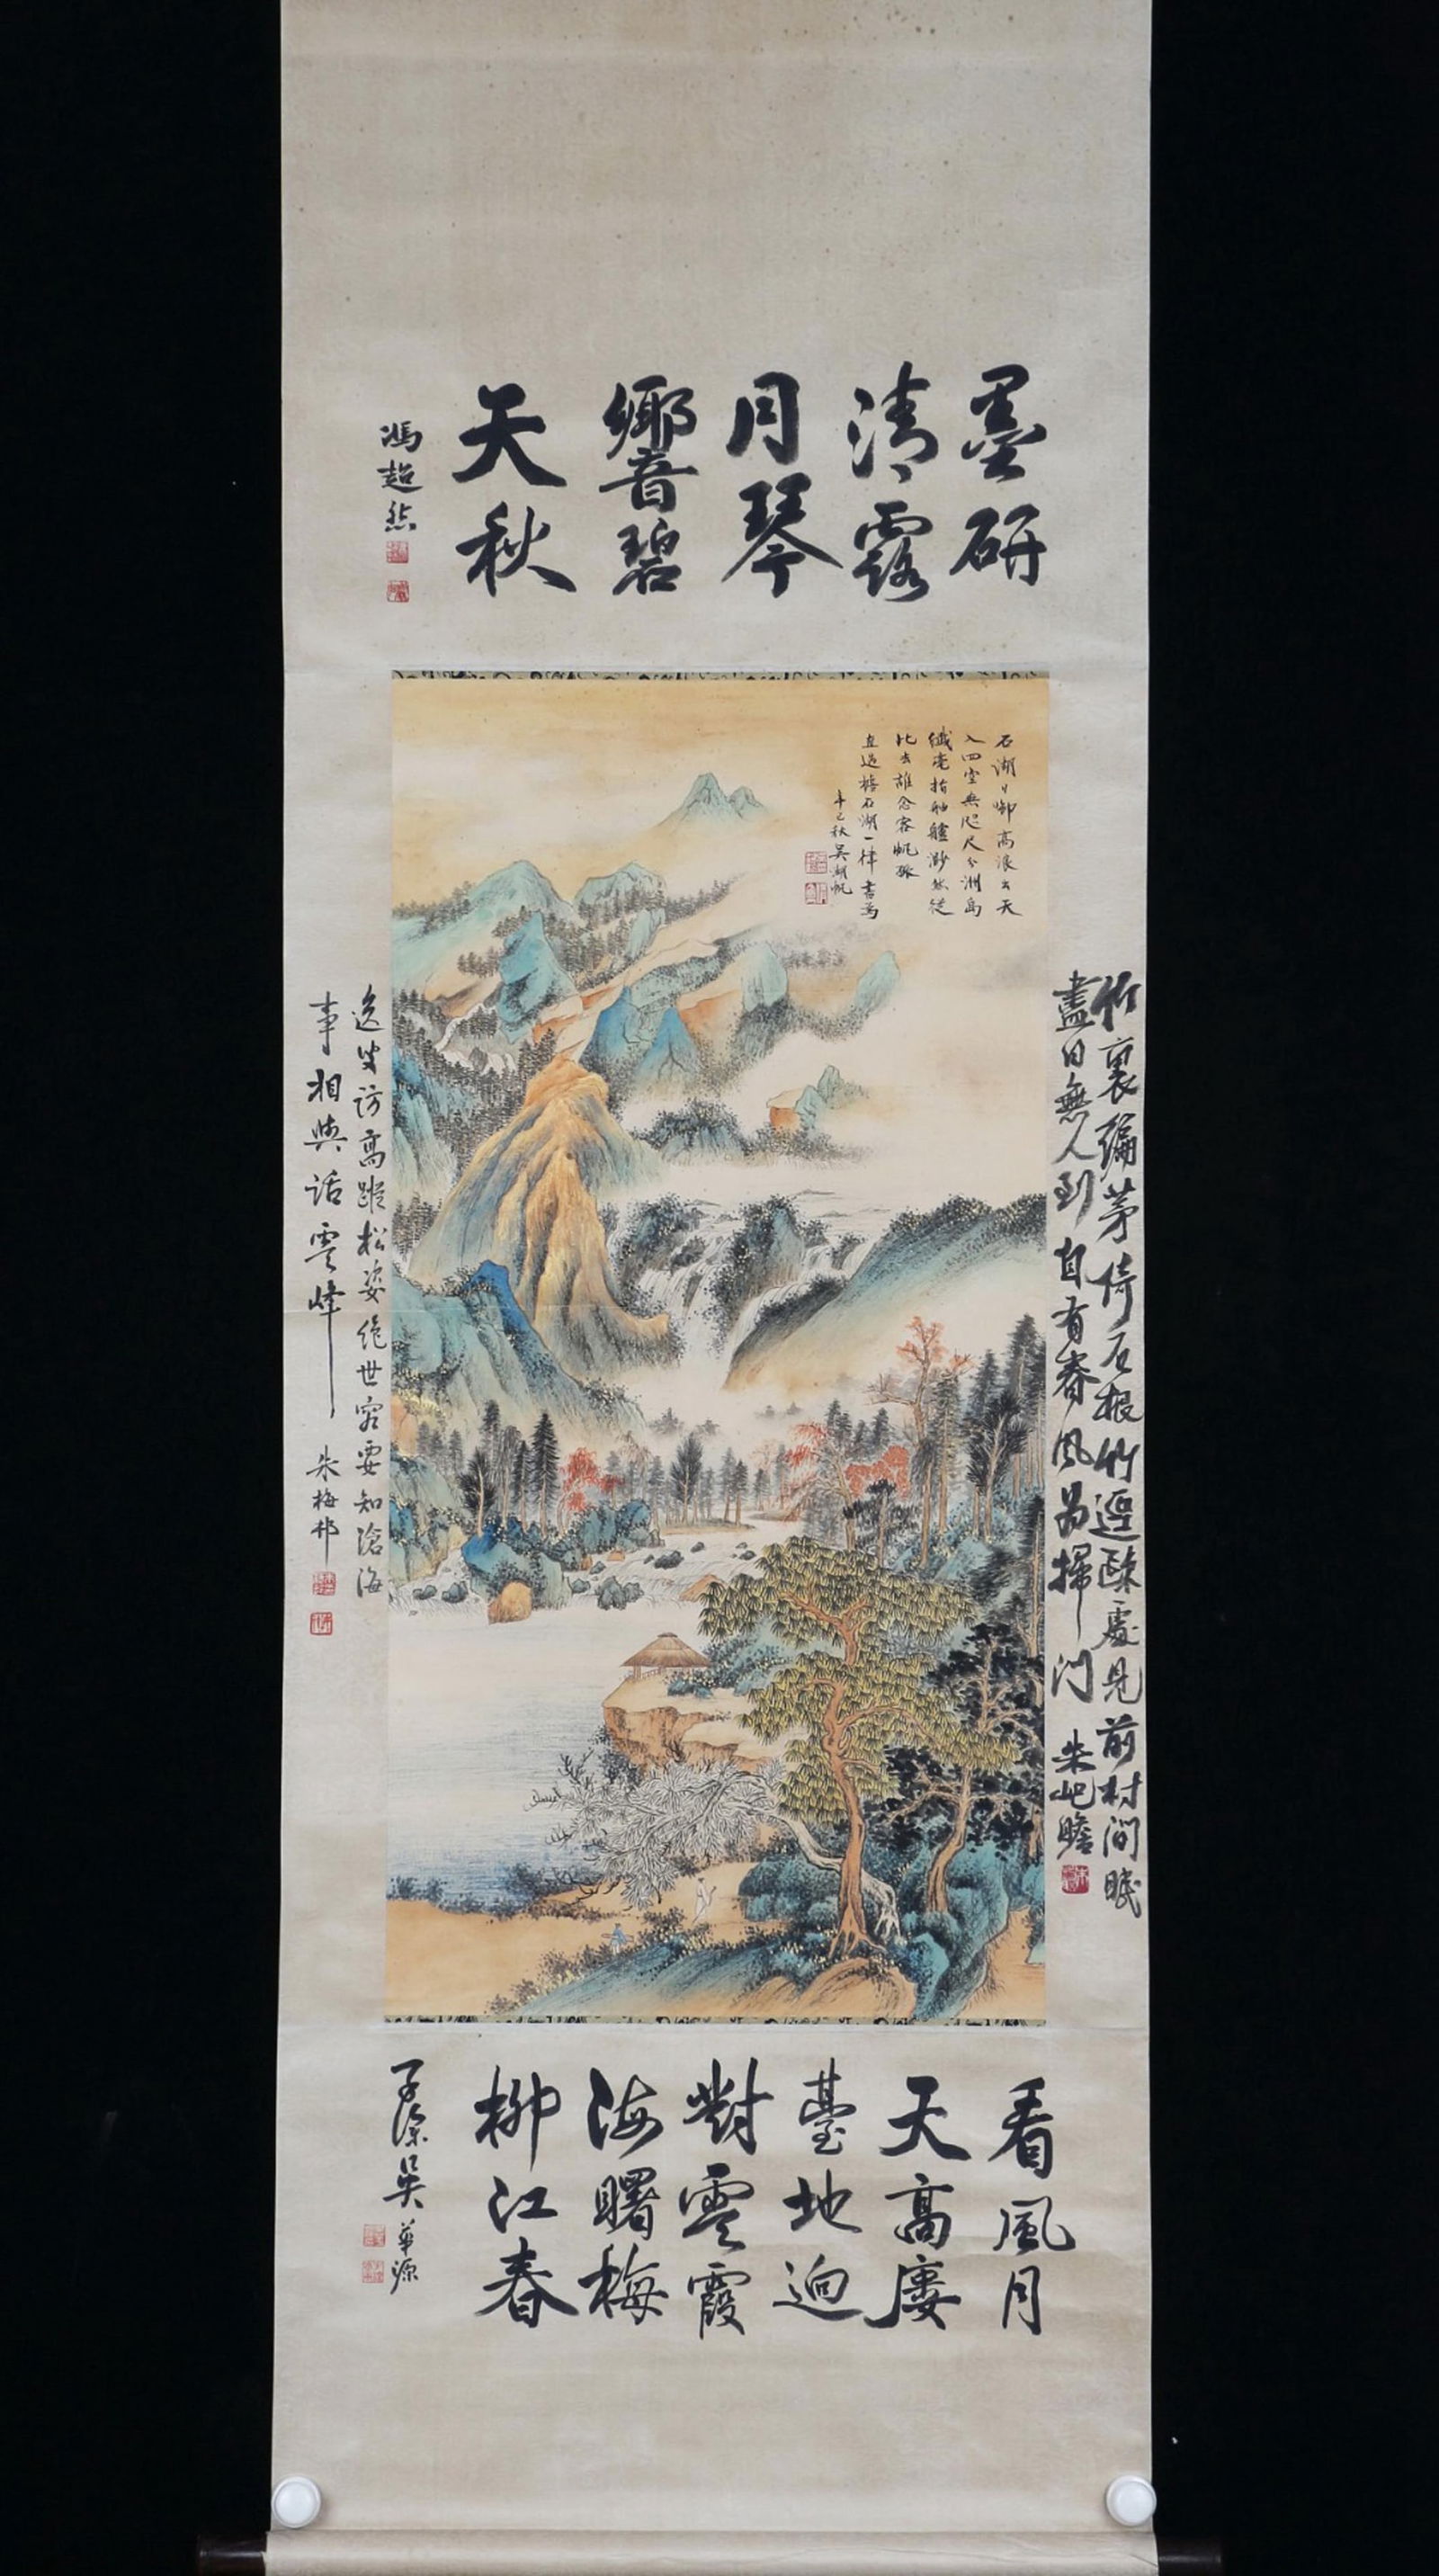 墨研
清露
月琴
響碧
天秋
馮超然
石湖日腳高浪出天
入四空無咫尺分洲島
纖毫指舳艫渺然從
此去誰念客帆孤
直過檣石湖一律書為
辛巳秋吳湖帆
竹裏編茅倚石根竹逕疎處見前村閒眠
盡日無人到自有春風為掃門
朱屺瞻
逸叟訪高蹤松姿絕世容要知滄海
事相與話雲峰
朱梅邨
看風月
天高廔
臺地迥
對雲霞
海曙梅
柳江春
子深吳華源